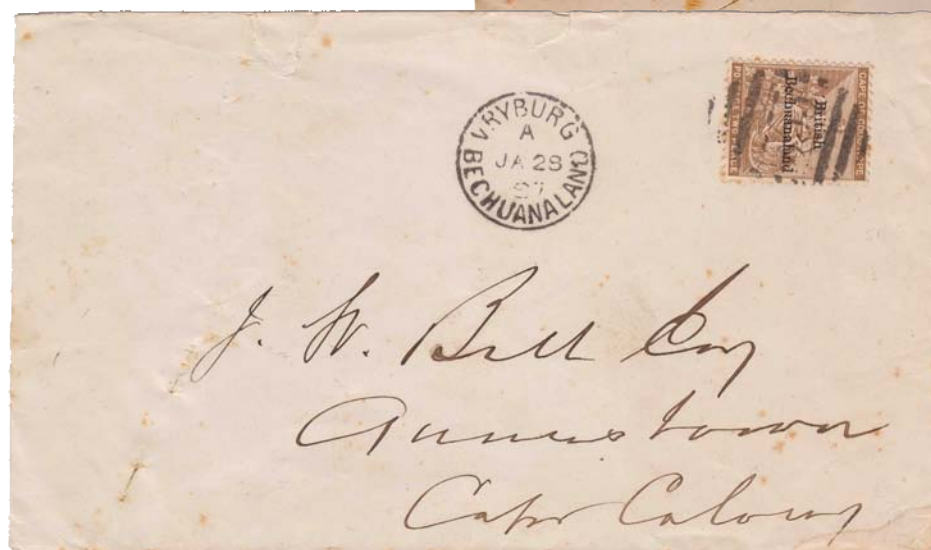 VRYBURG
A
JA 28
87
BECHUANALAND
CAPE OF GOOD HOPE
British
Bechuanaland
J. W. Bell Esq
Queenstown
Cape Colony